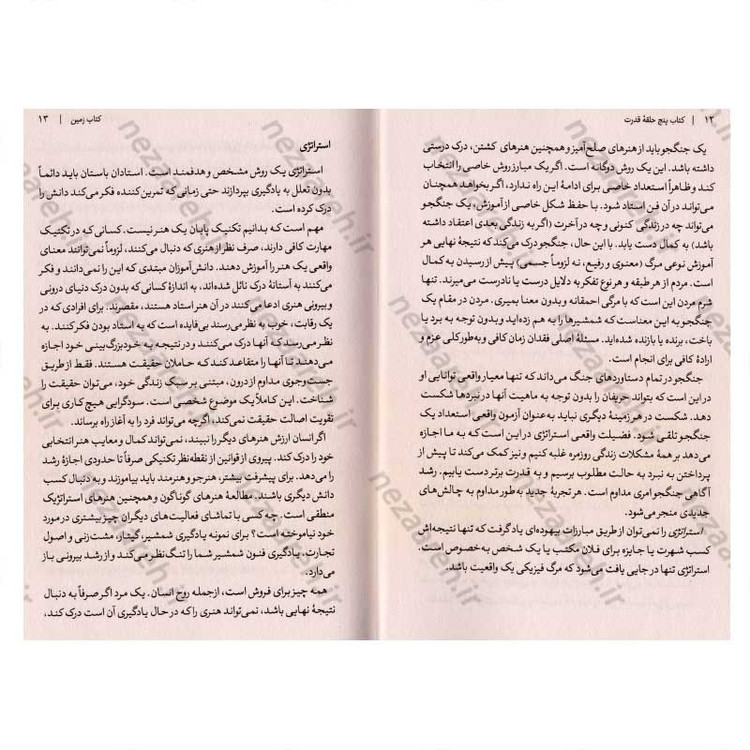 ۱۲ | کتاب پنج حلقهٔ قدرت
یک جنگجو باید از هنرهای صلح‌آمیز و همچنین هنرهای کشتن، درک درستی
داشته باشد. این یک روش دوگانه است. اگر یک مبارز روش خاصی را انتخاب
کند و ظاهراً استعداد خاصی برای ادامهٔ این راه ندارد، اگر بخواهد همچنان
می‌تواند در آن فن استاد شود. با حفظ شکل خاصی از آموزش، یک جنگجو
می‌تواند چه در زندگی کنونی و چه در آخرت (اگر به زندگی بعدی اعتقاد داشته
باشد) به کمال دست یابد. با این حال، جنگجو درک می‌کند که نتیجهٔ نهایی هر
آموزش نوعی مرگ (معنوی و رفیع، نه لزوماً جسمی) پیش از رسیدن به کمال
است. مردم از هر طبقه و هر نوع تفکر به دلایل درست یا نادرست می‌میرند. تنها
شرم مردن این است که با مرگی احمقانه و بدون معنا بمیری. مردن در مقام یک
جنگجو به این معناست که شمشیرها را به هم زده‌اید و بدون توجه به برد یا
باخت، برنده یا بازنده شده‌اید. مسئلهٔ اصلی فقدان زمان کافی و به‌طور کلی عزم و
ارادهٔ کافی برای انجام است.
جنگجو در تمام دستاوردهای جنگ می‌داند که تنها معیار واقعی توانایی او
در این است که بتواند حریفان را بدون توجه به ماهیت آنها در نبردها شکست
دهد. شکست در هر زمینهٔ دیگری نباید به‌عنوان آزمون واقعی استعداد یک
جنگجو تلقی شود. فضیلت واقعی استراتژی در این است که به ما اجازه
می‌دهد بر همهٔ مشکلات زندگی روزمره غلبه کنیم و نیز کمک می‌کند تا پیش از
پرداختن به نبرد به حالت مطلوب برسیم و به قدرت برتر دست یابیم. رشد
آگاهی جنگجو امری مداوم است. هر تجربهٔ جدید به طور مداوم به چالش‌های
جدیدی منجر می‌شود.
استراتژی را نمی‌توان از طریق مبارزات بیهوده‌ای یاد گرفت که تنها نتیجه‌اش
کسب شهرت یا جایزه برای فلان مکتب یا یک شخص به‌خصوص است.
استراتژی تنها در جایی یافت می‌شود که مرگ فیزیکی یک واقعیت باشد.
کتاب زمین | ۱۳
استراتژی
استراتژی یک روش مشخص و هدفمند است. استادان باستان باید دائماً
بدون تعلل به یادگیری بپردازند حتی زمانی که تمرین‌کننده فکر می‌کند دانش را
درک کرده است.
مهم است که بدانیم تکنیک پایان یک هنر نیست. کسانی که در تکنیک
مهارت کافی دارند، صرف نظر از هنری که دنبال می‌کنند، لزوماً نمی‌توانند معنای
واقعی یک هنر را آموزش دهند. دانش‌آموزان مبتدی که این را نمی‌دانند و فکر
می‌کنند به آستانهٔ درک نائل شده‌اند، به اندازهٔ کسانی که بدون درک دنیای درونی
و بیرونی هنری ادعا می‌کنند در آن هنر استاد هستند، مقصرند. برای افرادی که در
یک رقابت، خوب به نظر می‌رسند بی‌فایده است که به استاد بودن فکر کنند. به
نظر می‌رسد که آنها درک می‌کنند و در نتیجه به خودبزرگ‌بینی خود اجازه
می‌دهند تا آنها را متقاعد کند که حاملان حقیقت هستند. فقط از طریق
جست‌وجوی مداوم از درون، مبتنی بر سبک زندگی خود، می‌توان حقیقت را
شناخت. این کاملاً یک موضوع شخصی است. سودگرایی هیچ کاری برای
تقویت اصالت حقیقت نمی‌کند، اگرچه می‌تواند فرد را به آغاز راه برساند.
اگر انسان ارزش هنرهای دیگر را نبیند، نمی‌تواند کمال و معایب هنر انتخابی
خود را درک کند. پیروی از قوانین از نقطه‌نظر تکنیکی صرفاً تا حدودی اجازهٔ رشد
را می‌دهد. برای پیشرفت بیشتر، هنرجو و هنرمند باید بیاموزند و به دنبال کسب
دانش دیگری باشند. مطالعهٔ هنرهای گوناگون و همچنین هنرهای استراتژیک
منطقی است. چه کسی با تماشای فعالیت‌های دیگران چیز بیشتری در مورد
خود نیاموخته است؟ برای نمونه یادگیری شمشیر، گیتار، مشت‌زنی و اصول
تجارت. یادگیری فنون شمشیر شما را تنگ‌نظر می‌کند و از رشد بیرونی باز
می‌دارد.
همه چیز برای فروش است، ازجمله روح انسان. یک مرد اگر صرفاً به دنبال
نتیجهٔ نهایی باشد، نمی‌تواند هنری را که در حال یادگیری آن است درک کند،
nezaareh.ir